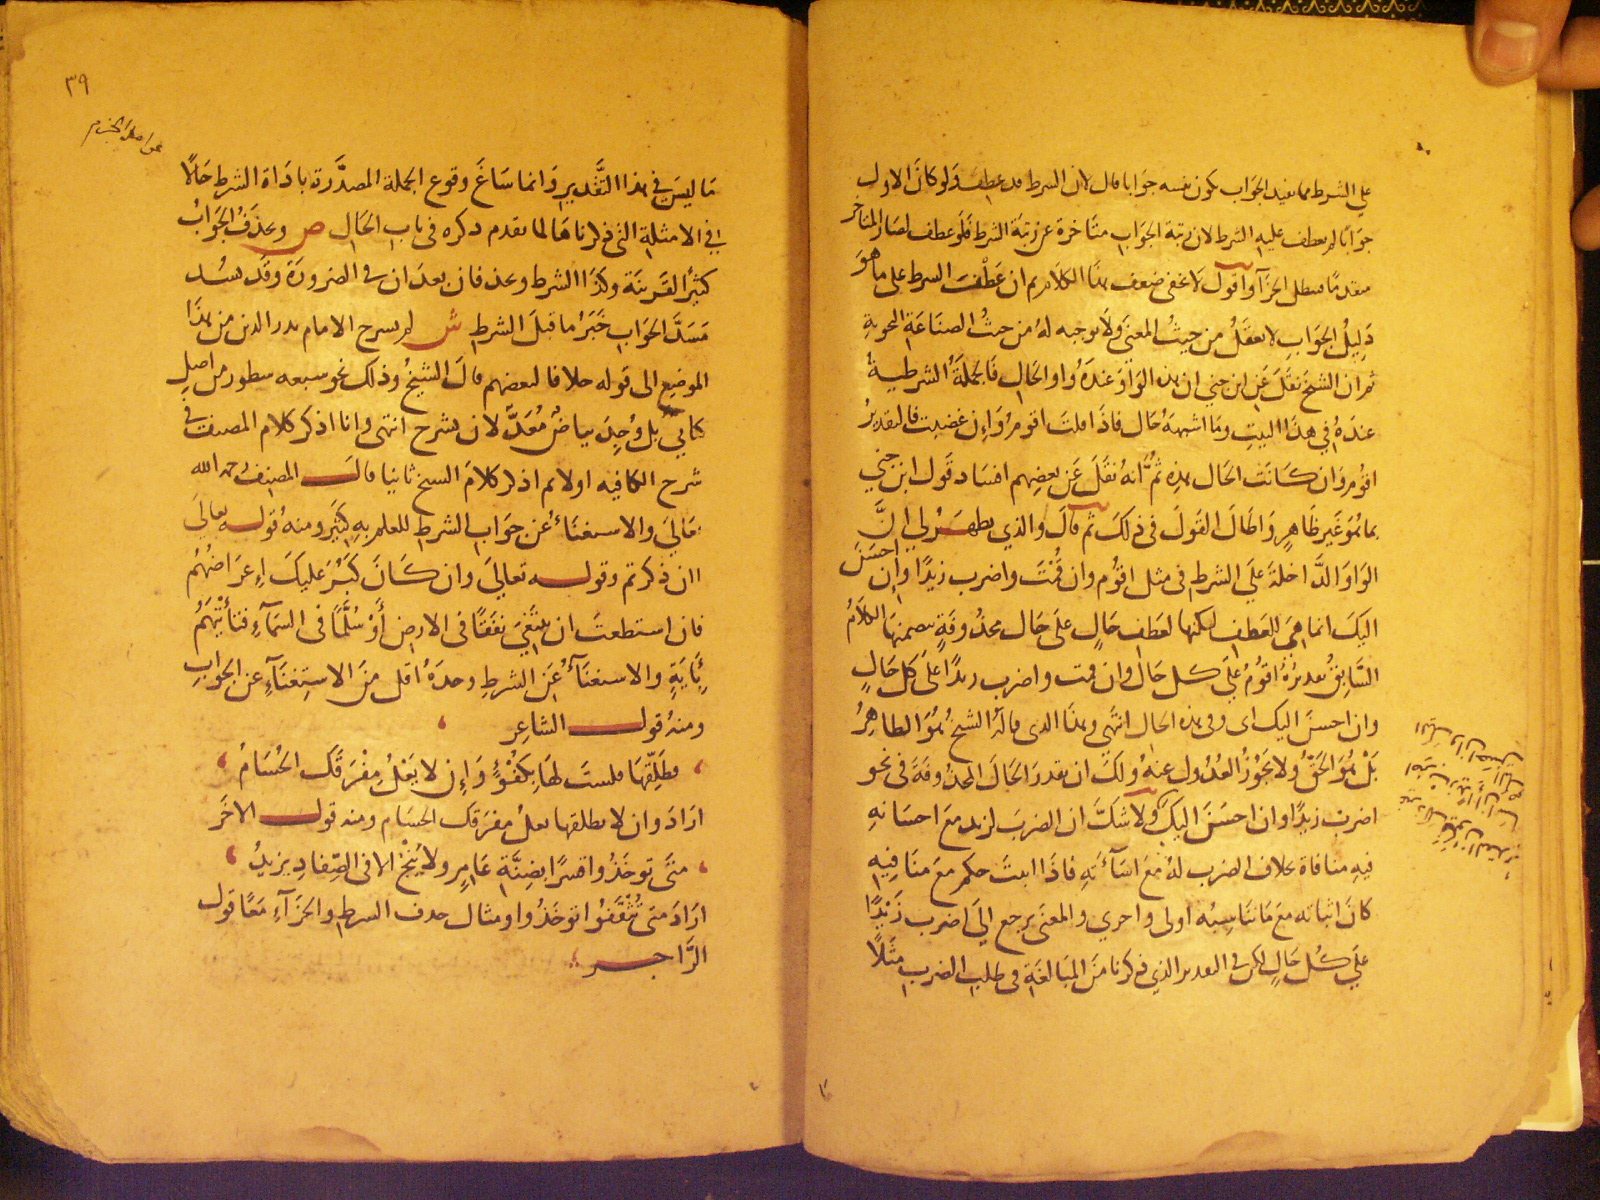 على الشرط مما يفيد الجواب بكون نفسه جوابا قال لان الشرط قد عطف ولو كان الاول
جوابا لم يعطف عليه الشرط لان رتبة الجواب متاخرة عن رتبة الشرط فلو عطف لصار المتاخر
مقدما فبطل الجزآ واقول لا يخفى ضعف هذا الكلام ان عطف الشرط على ما هو
دليل الجواب لا يعقل من حيث المعنى ولا توجيه له من حيث الصناعة النحوية
ثم ان الشيخ نقل عن ابن جني ان هذه الواو عنده واو الحال فالجملة الشرطية
عنده في هذا البيت وما اشبهه حال فاذا قلت اقوم وان غضبت فالتقدير
اقوم وان كانت الحال هذه ثم انه نقل عن بعضهم افساد قول ابن جني
بما هو غير ظاهر واطال القول في ذلك ثم قال والذي يظهر لي ان
الواو الداخلة على الشرط في مثل اقوم وان قمت واضرب زيدا وان احسن
اليك انما هي للعطف لكنها لعطف حال على حال محذوفة يتضمنها الكلام
السابق تقديره اقوم على كل حال وان قمت واضرب زيدا على كل حال
وان احسن اليك اى وفي هذه الحال انتهى وهذا الذي قاله الشيخ هو الظاهر
بل هو الحق ولا يجوز العدول عنه ولك ان تقدر الحال المحذوفة في نحو
اضرب زيدا وان احسن اليك ولا شك ان الضرب لزيد مع احسانه
فيه منافاة بخلاف الضرب له مع اسآئته فاذا اثبت حكم مع منافيه
كان اثباته مع ما يناسبه اولى واحرى والمعنى يرجع الى اضرب زيدا
على كل حال لكن في التقدير الذي ذكرنا من المبالغة في طلب الضرب مثلا
٣٩
عوامل الجزم
ما ليس في هذا التقدير وانما ساغ وقوع الجملة المصدرة باداة الشرط حالا
في الامثلة التي ذكرناها لما تقدم ذكره في باب الحال ص ويحذف الجواب
كثيرا لقرينة وكذا الشرط وحذفان بعد ان في الضرورة وقد يسد
مسد الجواب خبر ما قبل الشرط ش لم يشرح الامام بدر الدين من هذا
الموضع الى قوله خلافا لبعضهم قال الشيخ وذلك نحو سبعه سطور من اصل
كتابي بل وجد بياض معد لان يشرح انتهى وانا اذكر كلام المصنف في
شرح الكافيه اولا ثم اذكر كلام الشيخ ثانيا قال المصنف رحمه الله
تعالى والاستغنآء عن جواب الشرط للعلم به كثير ومنه قوله تعالى
اان ذكرتم وقوله تعالى وان كان كبر عليك اعراضهم
فان استطعت ان تبتغي نفقا في الارض او سلما في السمآء فتأتيهم
بآية والاستغنآء عن الشرط وحده اقل من الاستغنآء عن الجواب
ومنه قول الشاعر
فطلقها فلست لها بكفؤ وان لا يعل مفرقك الحسام
اراد وان لا تطلقها يعل مفرقك الحسام ومنه قول الاخر
متى توخذوا قسرا بظنة عامر ولا ينج الا في الصفاد يزيد
اراد متى تثقفوا توخذوا ومثال حذف الشرط والجزآء معا قول
الراجز